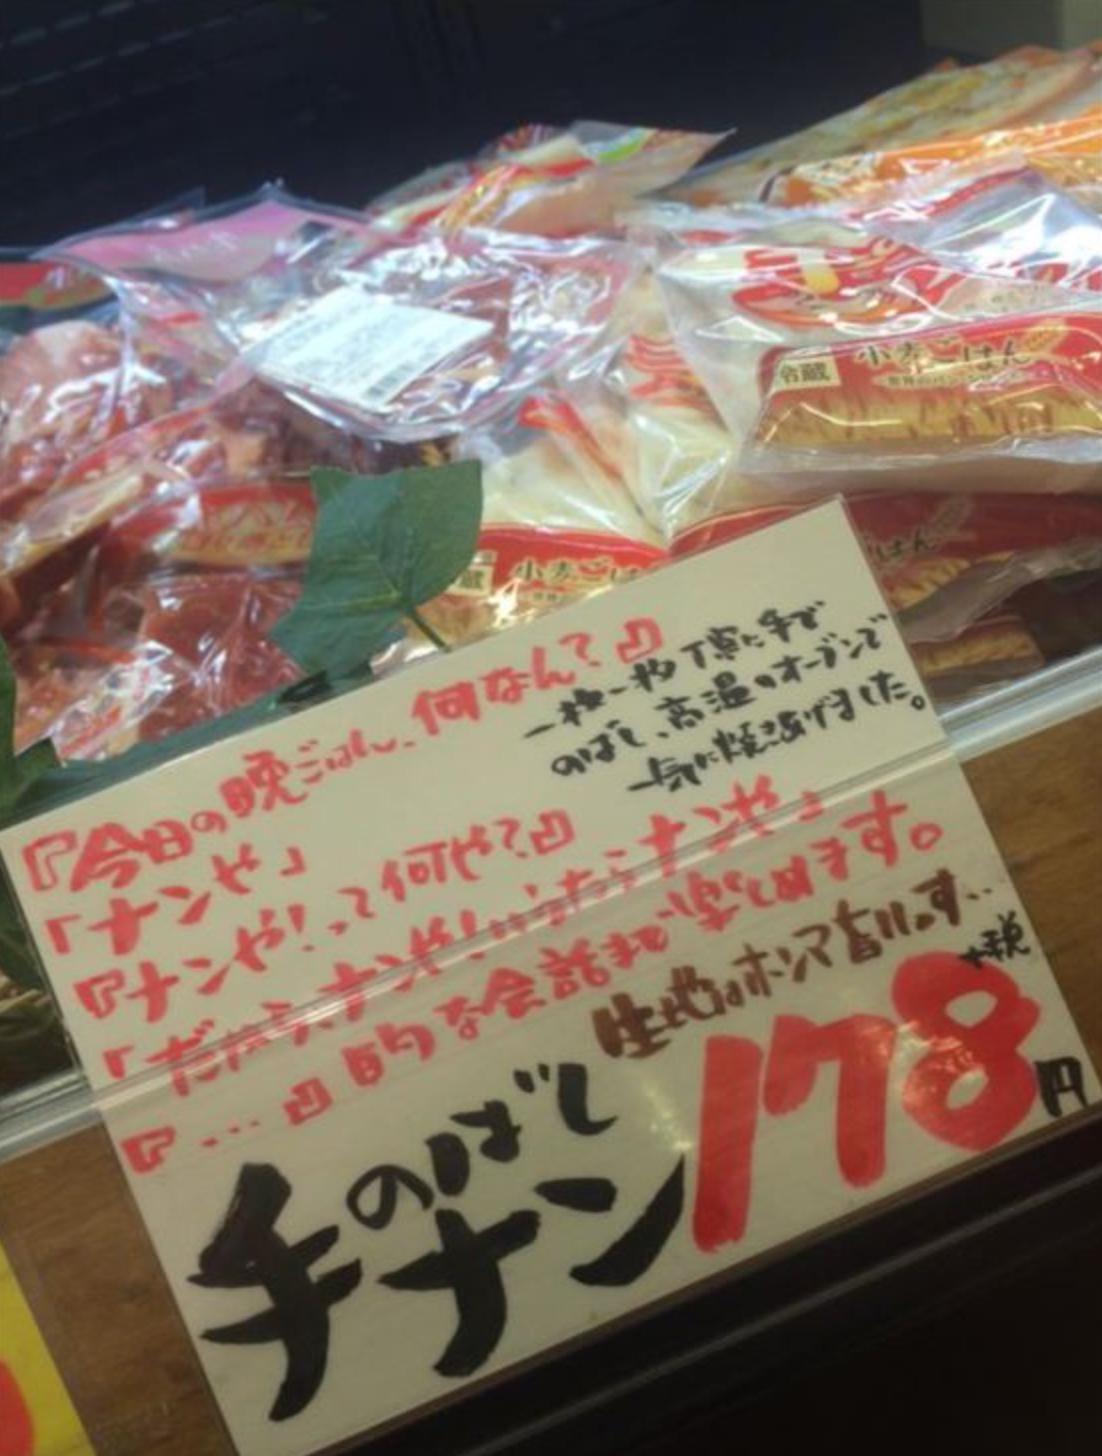 冷蔵
小麦ごはん
蔵
小麦ごは
はん
『今日の晩ごはん、何なん？』
「ナンや」
『ナンや！って何や？』
「だから、ナンや！いうたらナンや」
『…』的な会話まで楽しめます。
一枚一枚丁寧に手で
のばし、高温のオーブンで
一気に焼きあげました。
生地はホンマ旨いっす…
手のばし
ナン
178
円
+税